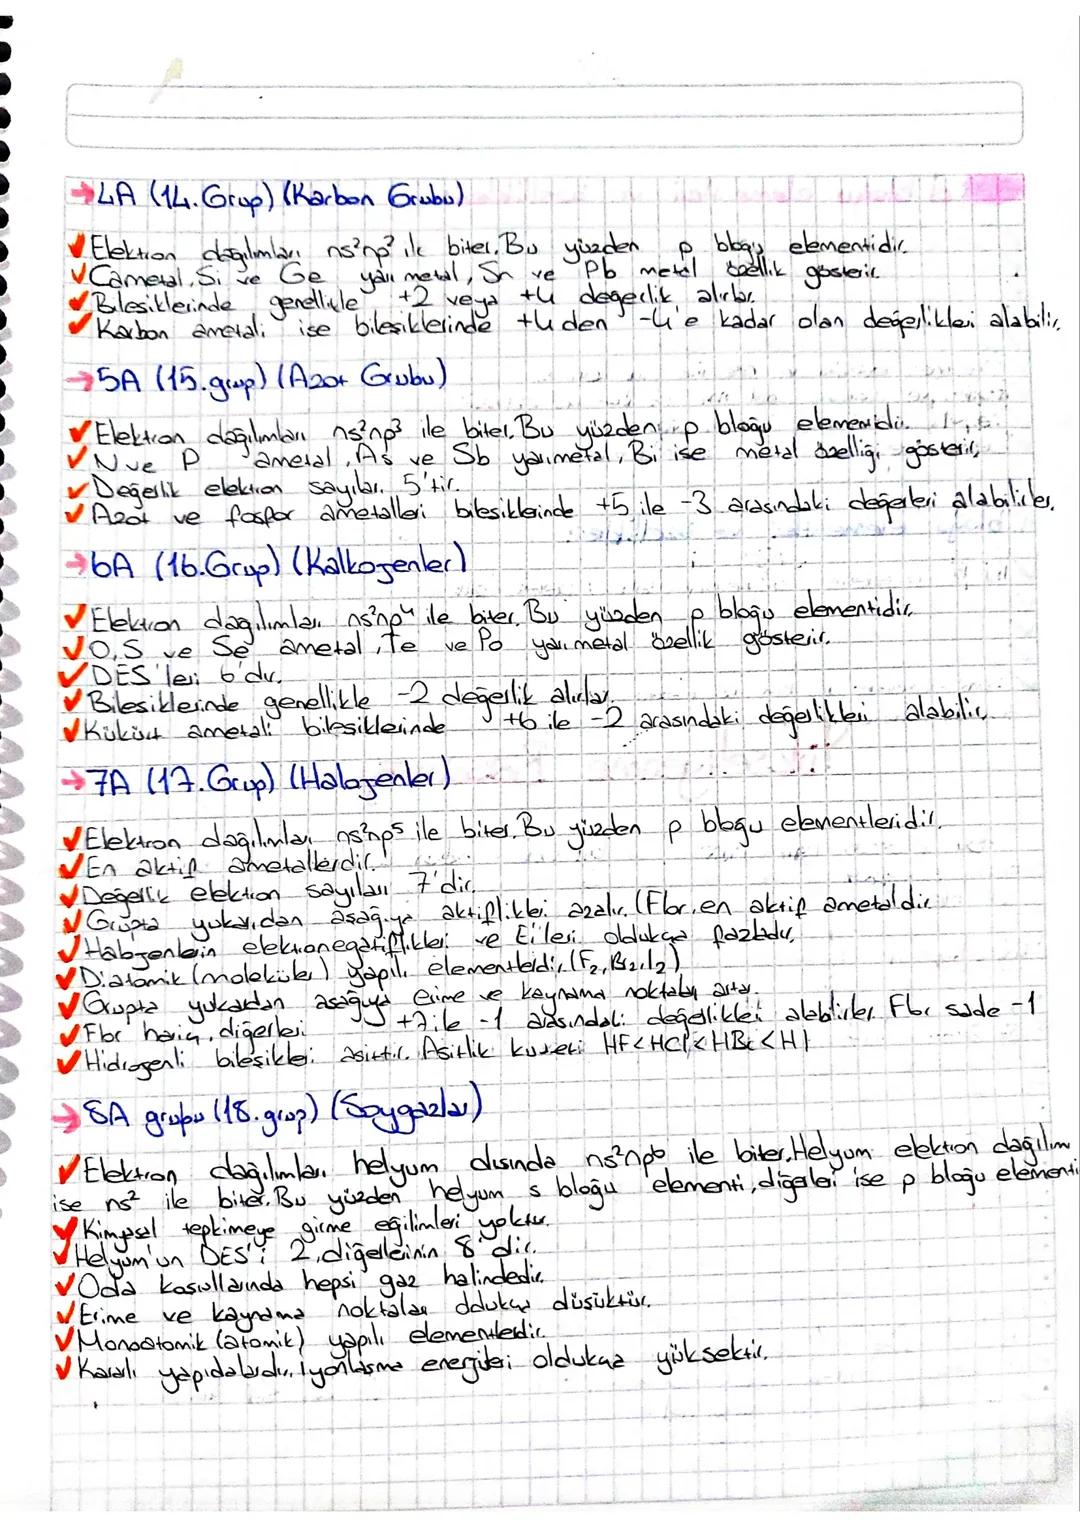 →4A (14.Grup) (Karbon Grubu)
✓Elektron dağılımları ns²np² ile biter. Bu yüzden p bloğu elementidir.
✓C ametal, Si ve Ge yarı metal, Sn ve Pb metal özellik gösterir.
✓Bileşiklerinde genellikle +2 veya +4 değerlik alırlar.
✓Karbon ametali ise bileşiklerinde +4 den -4'e kadar olan değerlikleri alabilir.
→5A (15.grup) (Azot Grubu)
✓Elektron dağılımları ns²np³ ile biter. Bu yüzden p bloğu elementidir.
✓N ve P ametal, As ve Sb yarımetal, Bi ise metal özelliği gösterir.
✓Değerlik elektron sayıları 5'tir.
✓Azot ve fosfor ametalleri bileşiklerinde +5 ile -3 arasındaki değerleri alabilirler.
→6A (16.Grup) (Kalkojenler)
✓Elektron dağılımları ns²np⁴ ile biter. Bu yüzden p bloğu elementidir.
✓O, S ve Se ametal, Te ve Po yarı metal özellik gösterir.
✓DES'leri 6'dır.
✓Bileşiklerinde genellikle -2 değerlik alırlar.
✓Kükürt ametali bileşiklerinde +6 ile -2 arasındaki değerlikleri alabilir.
→7A (17.Grup) (Halojenler)
✓Elektron dağılımları ns²np⁵ ile biter. Bu yüzden p bloğu elementleridir.
✓En aktif ametallerdir.
✓Değerlik elektron sayıları 7'dir.
✓Grupta yukarıdan aşağıya aktiflikleri azalır. (Flor, en aktif ametaldir.
✓Halojenlerin elektronegatiflikleri ve Ei'leri oldukça fazladır.
✓Diatomik (moleküler) yapılı elementlerdir. (F₂, Br₂, I₂)
✓Grupta yukardan aşağıya erime ve kaynama noktaları artar.
✓Flor hariç, diğerleri +7 ile -1 arasındaki değerlikleri alabilirler. Flor sade -1
✓Hidrojenli bileşikleri asittir. Asitlik kuvveti HF<HCl<HBr<HI
→8A grubu (18.grup) (Soygazlar)
✓Elektron dağılımları helyum dışında ns²np⁶ ile biter. Helyum elektron dağılım
ise ns² ile biter. Bu yüzden helyum s bloğu elementi, diğerleri ise p bloğu elementi
✓Kimyasal tepkimeye girme eğilimleri yoktur.
✓Helyum'un DES'i 2, diğerlerinin 8'dir.
✓Oda koşullarında hepsi gaz halindedir.
✓Erime ve kaynama noktaları oldukça düşüktür.
✓Monoatomik (atomik) yapılı elementlerdir.
✓Kararlı yapıdalardır. İyonlaşma enerjileri oldukça yüksektir.